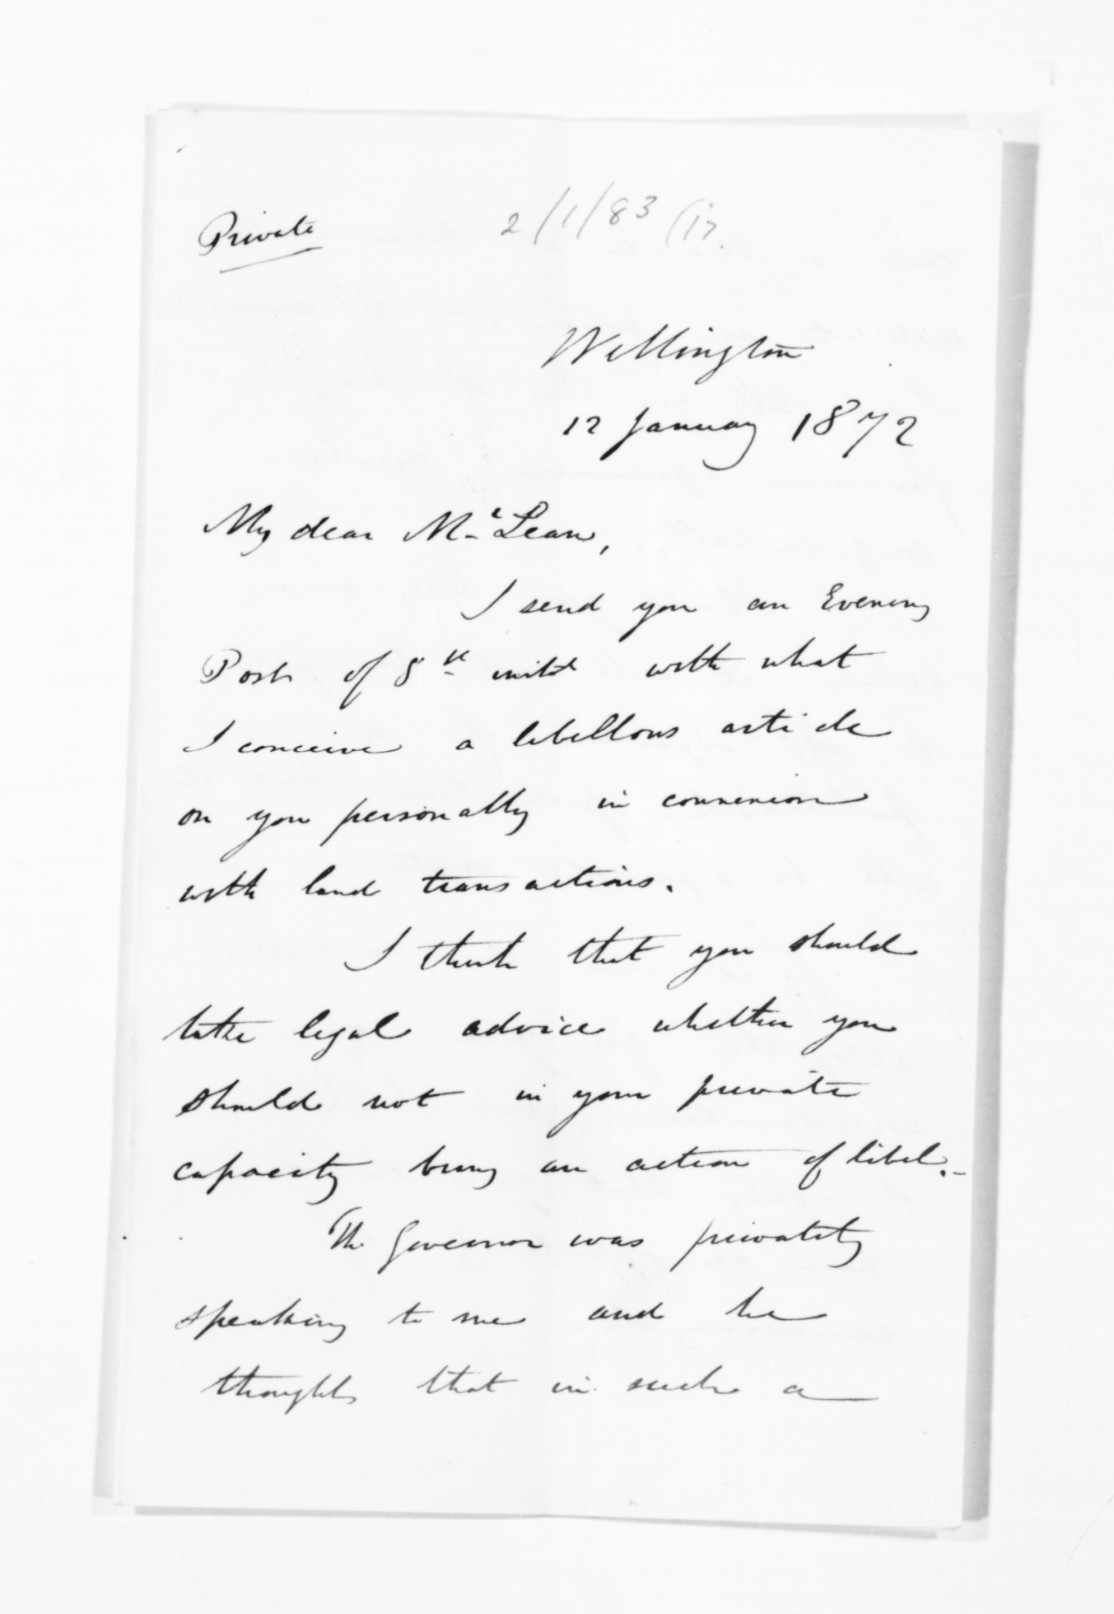 Private
2/1/83 (17.
Wellington
12 January 1872
My dear McLean,
I send you an Evening
Post of 8th with what
I conceive a libellous article
on you personally in connexion
with land transactions.
I think that you should
take legal advice whether you
should not in your private
capacity bring an action of libel.-
The Governor was privately
speaking to me and he
thought that in such a